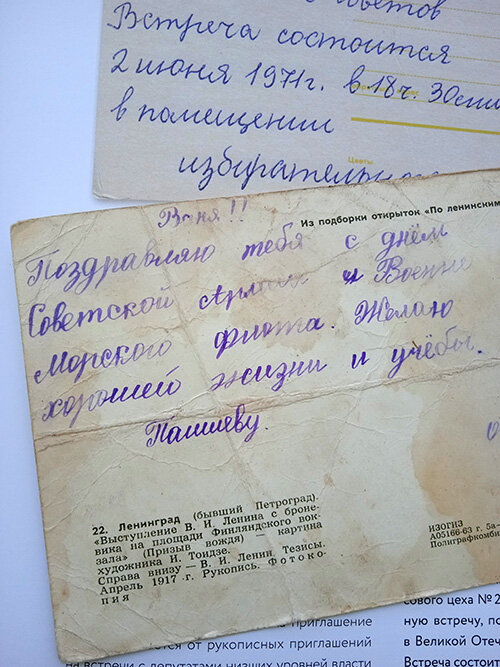 Советов
Встреча состоится
2 июня 1971г. в 18ч. 30мин
в помещении
Цветы
избирательно
Ваня!!
Из подборки открыток «По ленинским
Поздравляю тебя с днём
Советской Армии и Военно
Морского флота. Желаю
хорошей жизни и учёбы.
Пашиеву.
22. Ленинград (бывший Петроград).
«Выступление В. И. Ленина с броне-
вика на площади Финляндского вок-
зала» (Призыв вождя) — картина
художника И. Тоидзе.
Справа внизу — В. И. Ленин Тезисы.
Апрель 1917 г. Рукопись. Фотоко-
пия
ИЗОГИЗ
А05166-63 г. 5а-
Полиграфкомби
приглашение
ется от рукописных приглашений
на встречи с депутатами низших уровней власти
сового цеха № 2
ную встречу, по
в Великой Отече
Встреча состои